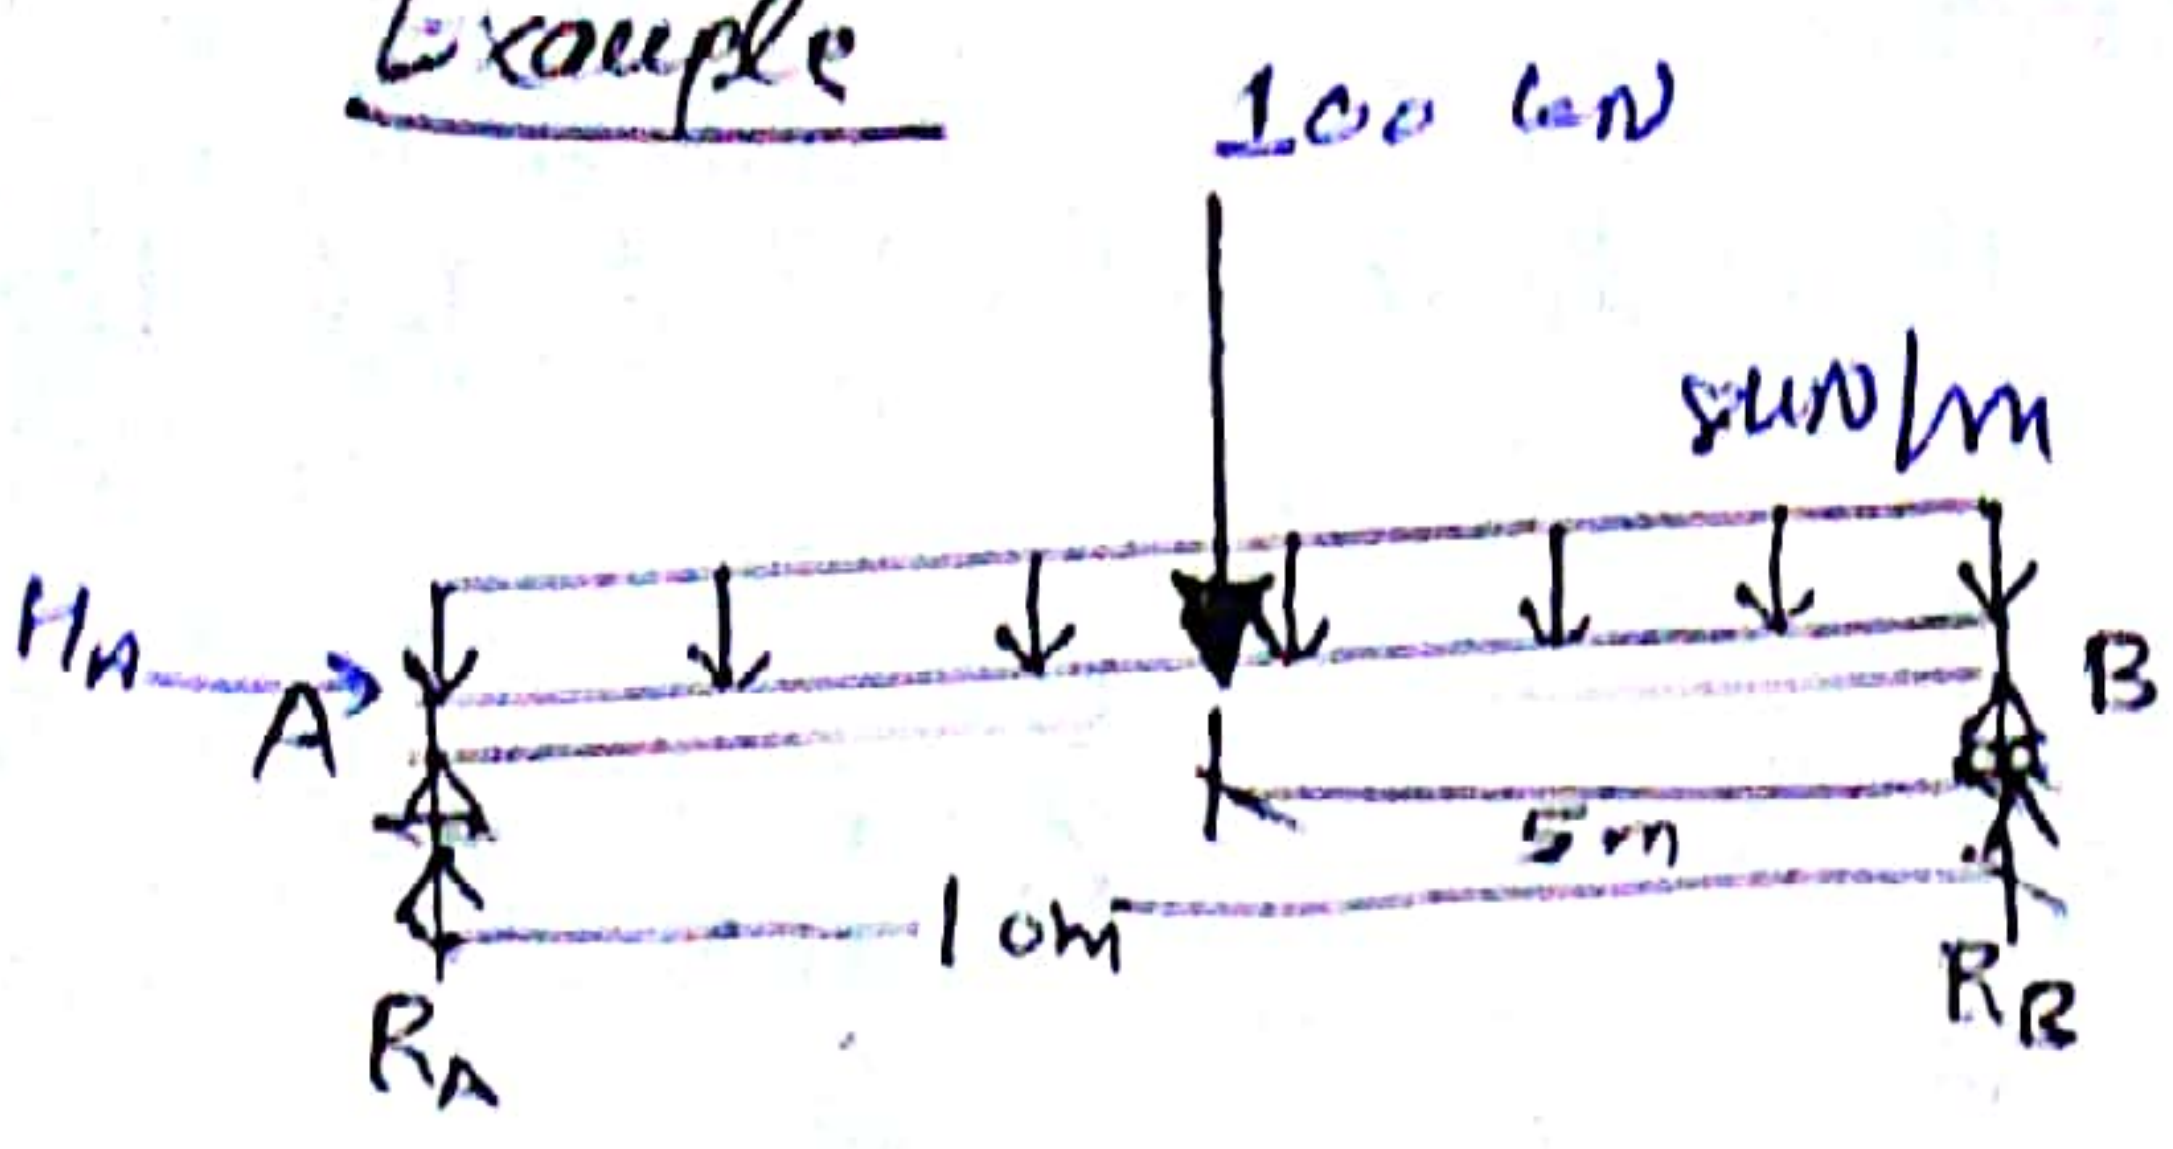 Example
100 kN
5kN/m
HA
A
B
5m
10m
RA
RB